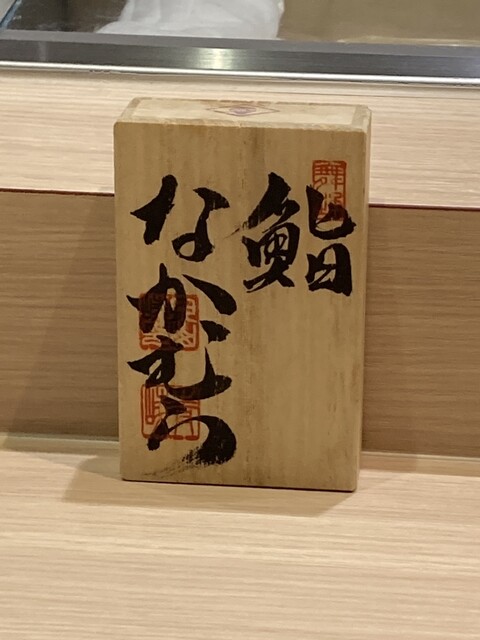 鮨
なかむら